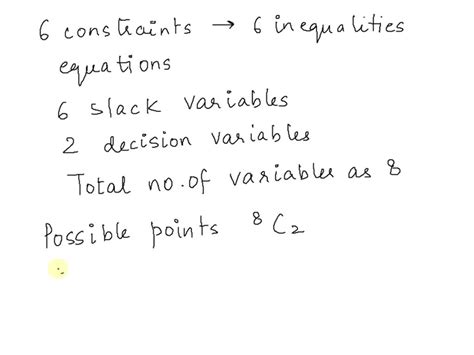 6 constraints → 6 inequalities
equations
6 slack variables
2 decision variables
Total no. of variables as 8
Possible points ⁸C₂
∴